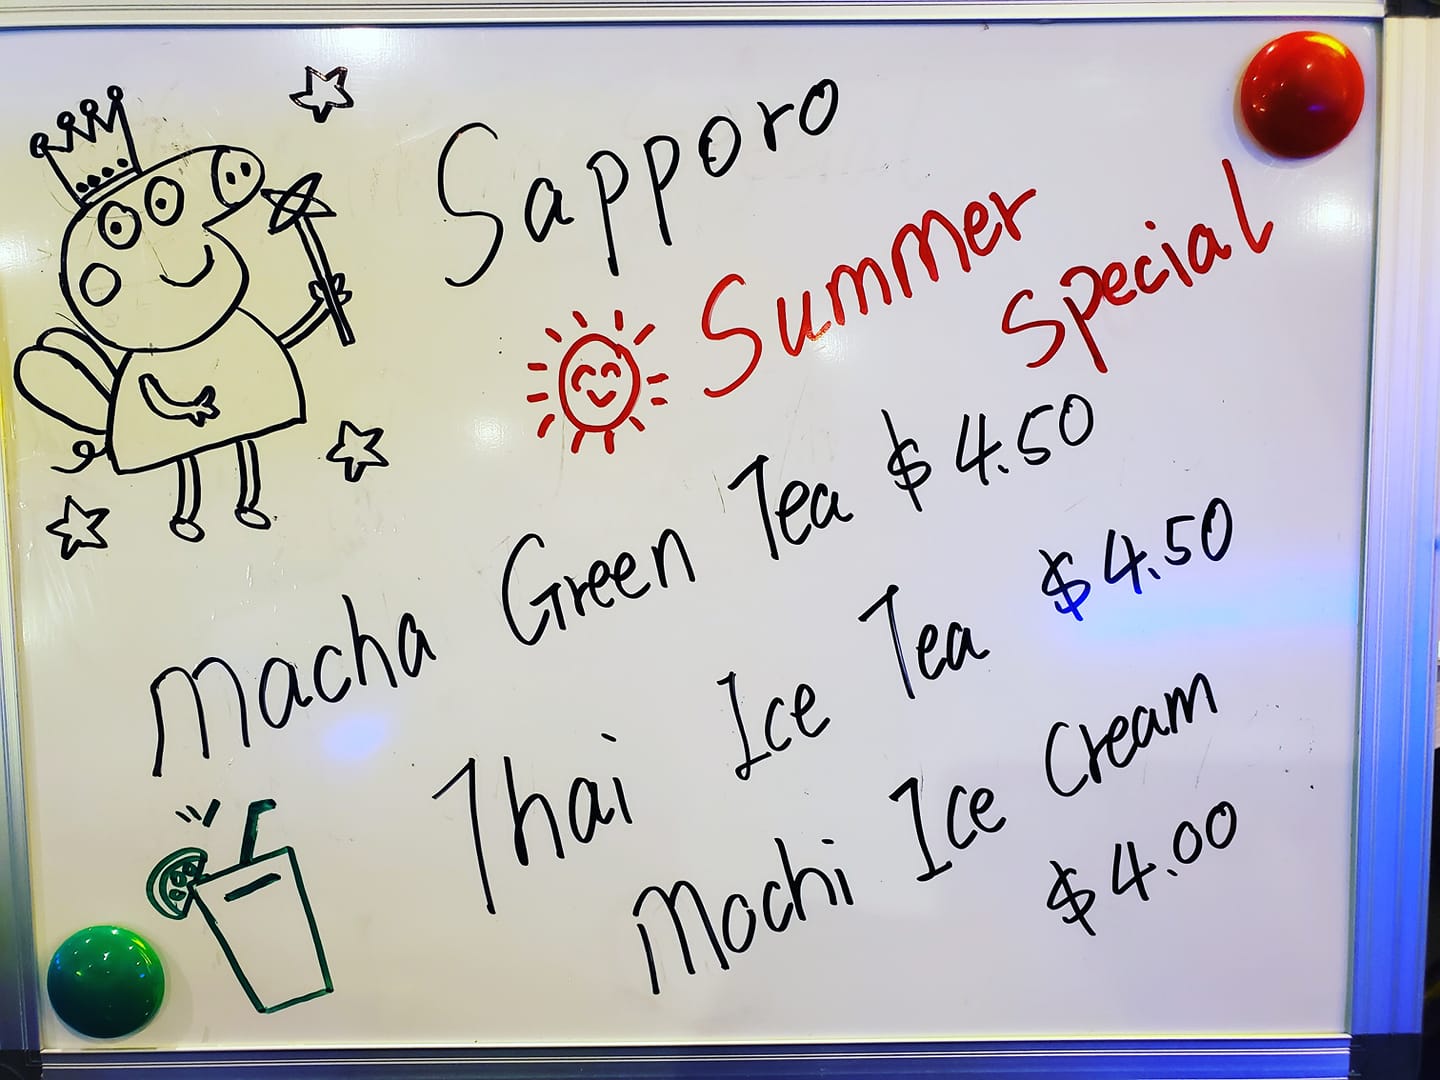 Sapporo
Summer
Special
Macha Green Tea $4.50
Thai Ice Tea $4.50
Mochi Ice Cream
$4.00